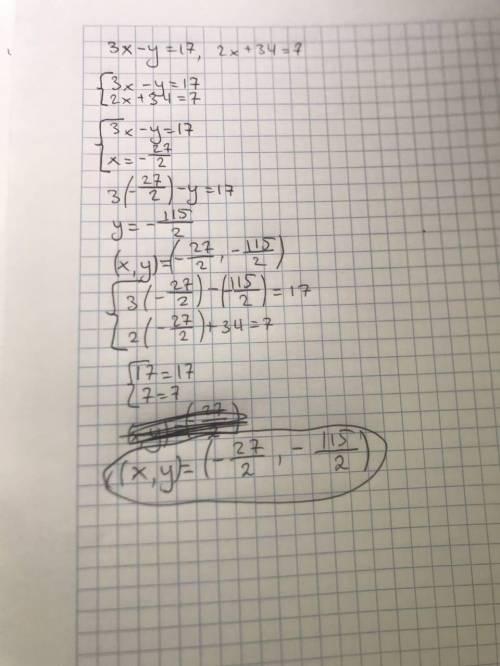 3x-y=17, 2x+34=7
{3x-y=17
2x+34=7
{3x-y=17
x=-27/2
3(-27/2)-y=17
y=-115/2
(x,y)=(-27/2,-115/2)
{3(-27/2)-(-115/2)=17
2(-27/2)+34=7
{17=17
7=7
(x,y)=(-27/2,-115/2)